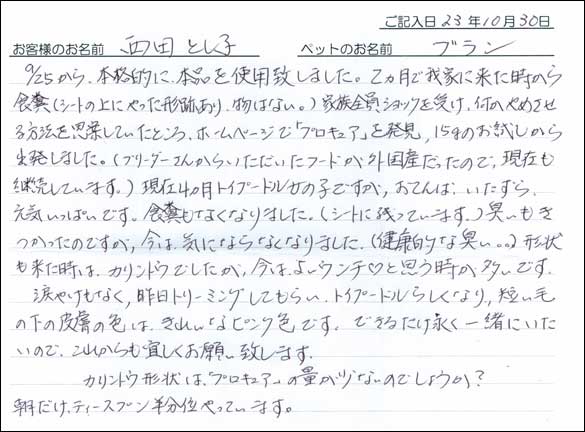 ご記入日 23年10月30日
お客様のお名前 西田とし子 ペットのお名前 ブラン
9/25から、本格的に、本品を使用致しました。2カ月で我家に来た時から
食糞(シートの上にやった形跡あり、物はない。)家族全員ショックを受け、何かやめさせ
る方法を思案していたところ、ホームページで「プロキュア」を発見、15gのお試しから
出発しました。(ブリーダーさんからいただいたフードが外国産だったので、現在も
継続しています。)現在4カ月トイプードル女の子ですが、おてんば、いたずら、
元気いっぱいです。食糞もなくなりました。(シートに残っています。)臭いもき
つかったのですが、今は、気にならなくなりました。(健康的な臭い。。)形状
も来た時は、カリントウでしたが、今は、よいウンチ♡と思う時が多いです。
涙やけもなく、昨日トリーミングしてもらい、トイプードルらしくなり、短い毛
の下の皮膚の色は、きれいなピンク色です。できるだけ永く一緒にいた
いので、これからも宜しくお願い致します。
カリントウ形状は、プロキュアーの量が少ないのでしょうか?
朝だけ、ティースプン半分位やっています。